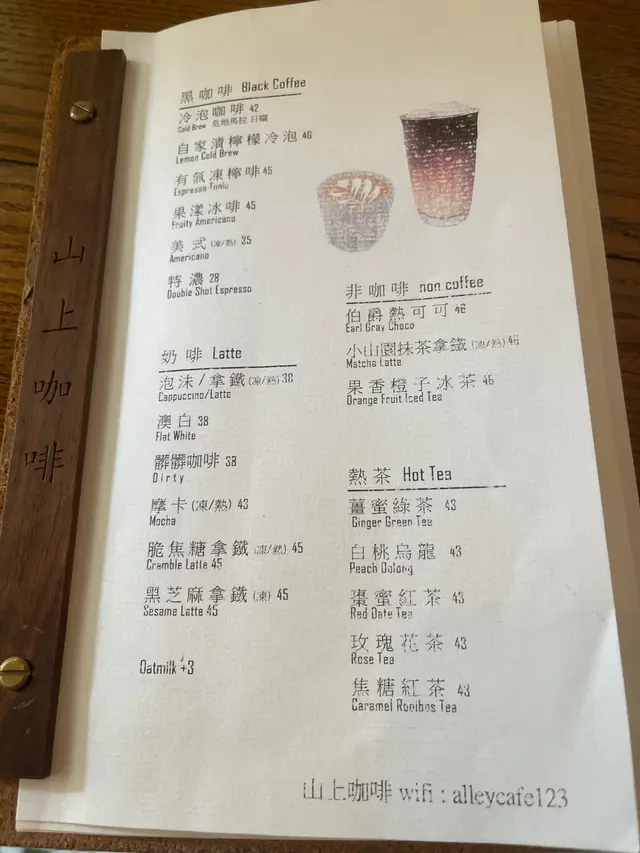 山上咖啡
黑咖啡 Black Coffee
冷泡咖啡 42
Cold Brew 危地馬拉 日曬
自家漬檸檬冷泡 46
Lemon Cold Brew
有氣凍檸啡 45
Espresso Tonic
果漾冰啡 45
Fruity Americano
美式 (凍/熱) 35
Americano
特濃 28
Double Shot Espresso
奶啡 Latte
泡沫/拿鐵 (凍/熱) 38
Cappuccino/Latte
澳白 38
Flat White
髒髒咖啡 38
Dirty
摩卡 (凍/熱) 43
Mocha
脆焦糖拿鐵 (凍/熱) 45
Cramble Latte 45
黑芝麻拿鐵 (凍) 45
Sesame Latte 45
Oatmilk +3
非咖啡 non coffee
伯爵熱可可 46
Earl Gray Choco
小山園抹茶拿鐵 (凍/熱) 46
Matcha Latte
果香橙子冰茶 46
Orange Fruit Iced Tea
熱茶 Hot Tea
薑蜜綠茶 43
Ginger Green Tea
白桃烏龍 43
Peach Oolong
棗蜜紅茶 43
Red Date Tea
玫瑰花茶 43
Rose Tea
焦糖紅茶 43
Caramel Rooibos Tea
山上咖啡 wifi : alleycafe123